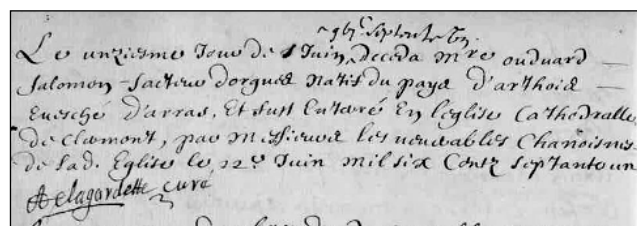 16c Septante Un
Le unziesme Jour de Juin, deceda Mre oudvard
Salomon facteur dorgues natif du pays d'arthois
Evesché d'arras, Et fust Enterré En leglise Cathedralle
de Clermont, par Messieurs les venerables Chanoisnes
de lad. Eglise le 12e Juin mil six Centz septante un
Delagardette curé